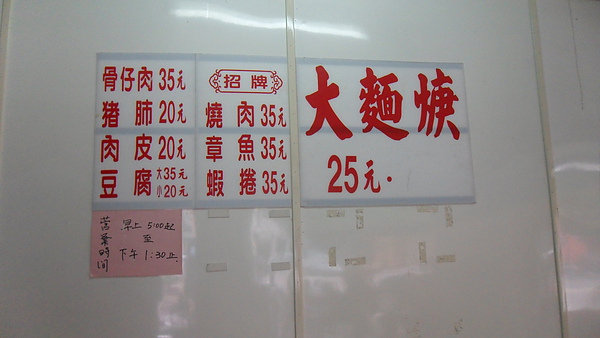 骨仔肉35元
豬肺20元
肉皮20元
豆腐大35元
小20元
招牌
燒肉35元
章魚35元
蝦捲35元
大麵焿
25元.
營業時間
早上5:00起
至
下午1:30止